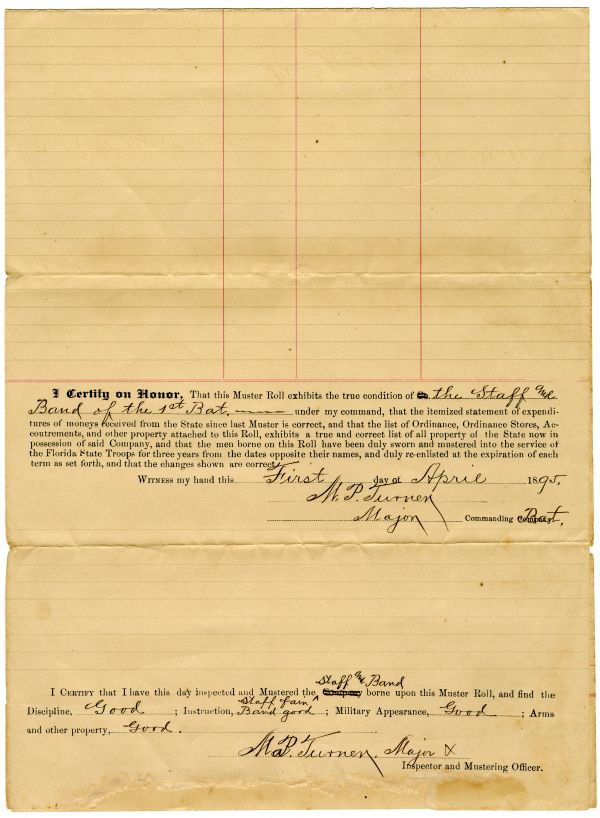 I Certify on Honor, That this Muster Roll exhibits the true condition of the Staff and
Band of the 1st Bat. under my command, that the itemized statement of expendi-
tures of moneys received from the State since last Muster is correct, and that the list of Ordinance, Ordinance Stores, Ac-
coutrements, and other property attached to this Roll, exhibits a true and correct list of all property of the State now in
possession of said Company, and that the men borne on this Roll have been duly sworn and mustered into the service of
the Florida State Troops for three years from the dates opposite their names, and duly re-enlisted at the expiration of each
term as set forth, and that the changes shown are correct.
WITNESS my hand this First day of April 1895.
M. P. Turner
Major Commanding Company Bat.
Staff and Band
I CERTIFY that I have this day inspected and Mustered the Company borne upon this Muster Roll, and find the
Staff fair
Discipline, Good ; Instruction, Band good ; Military Appearance, Good ; Arms
and other property, Good.
M. P. Turner. Major
Inspector and Mustering Officer.